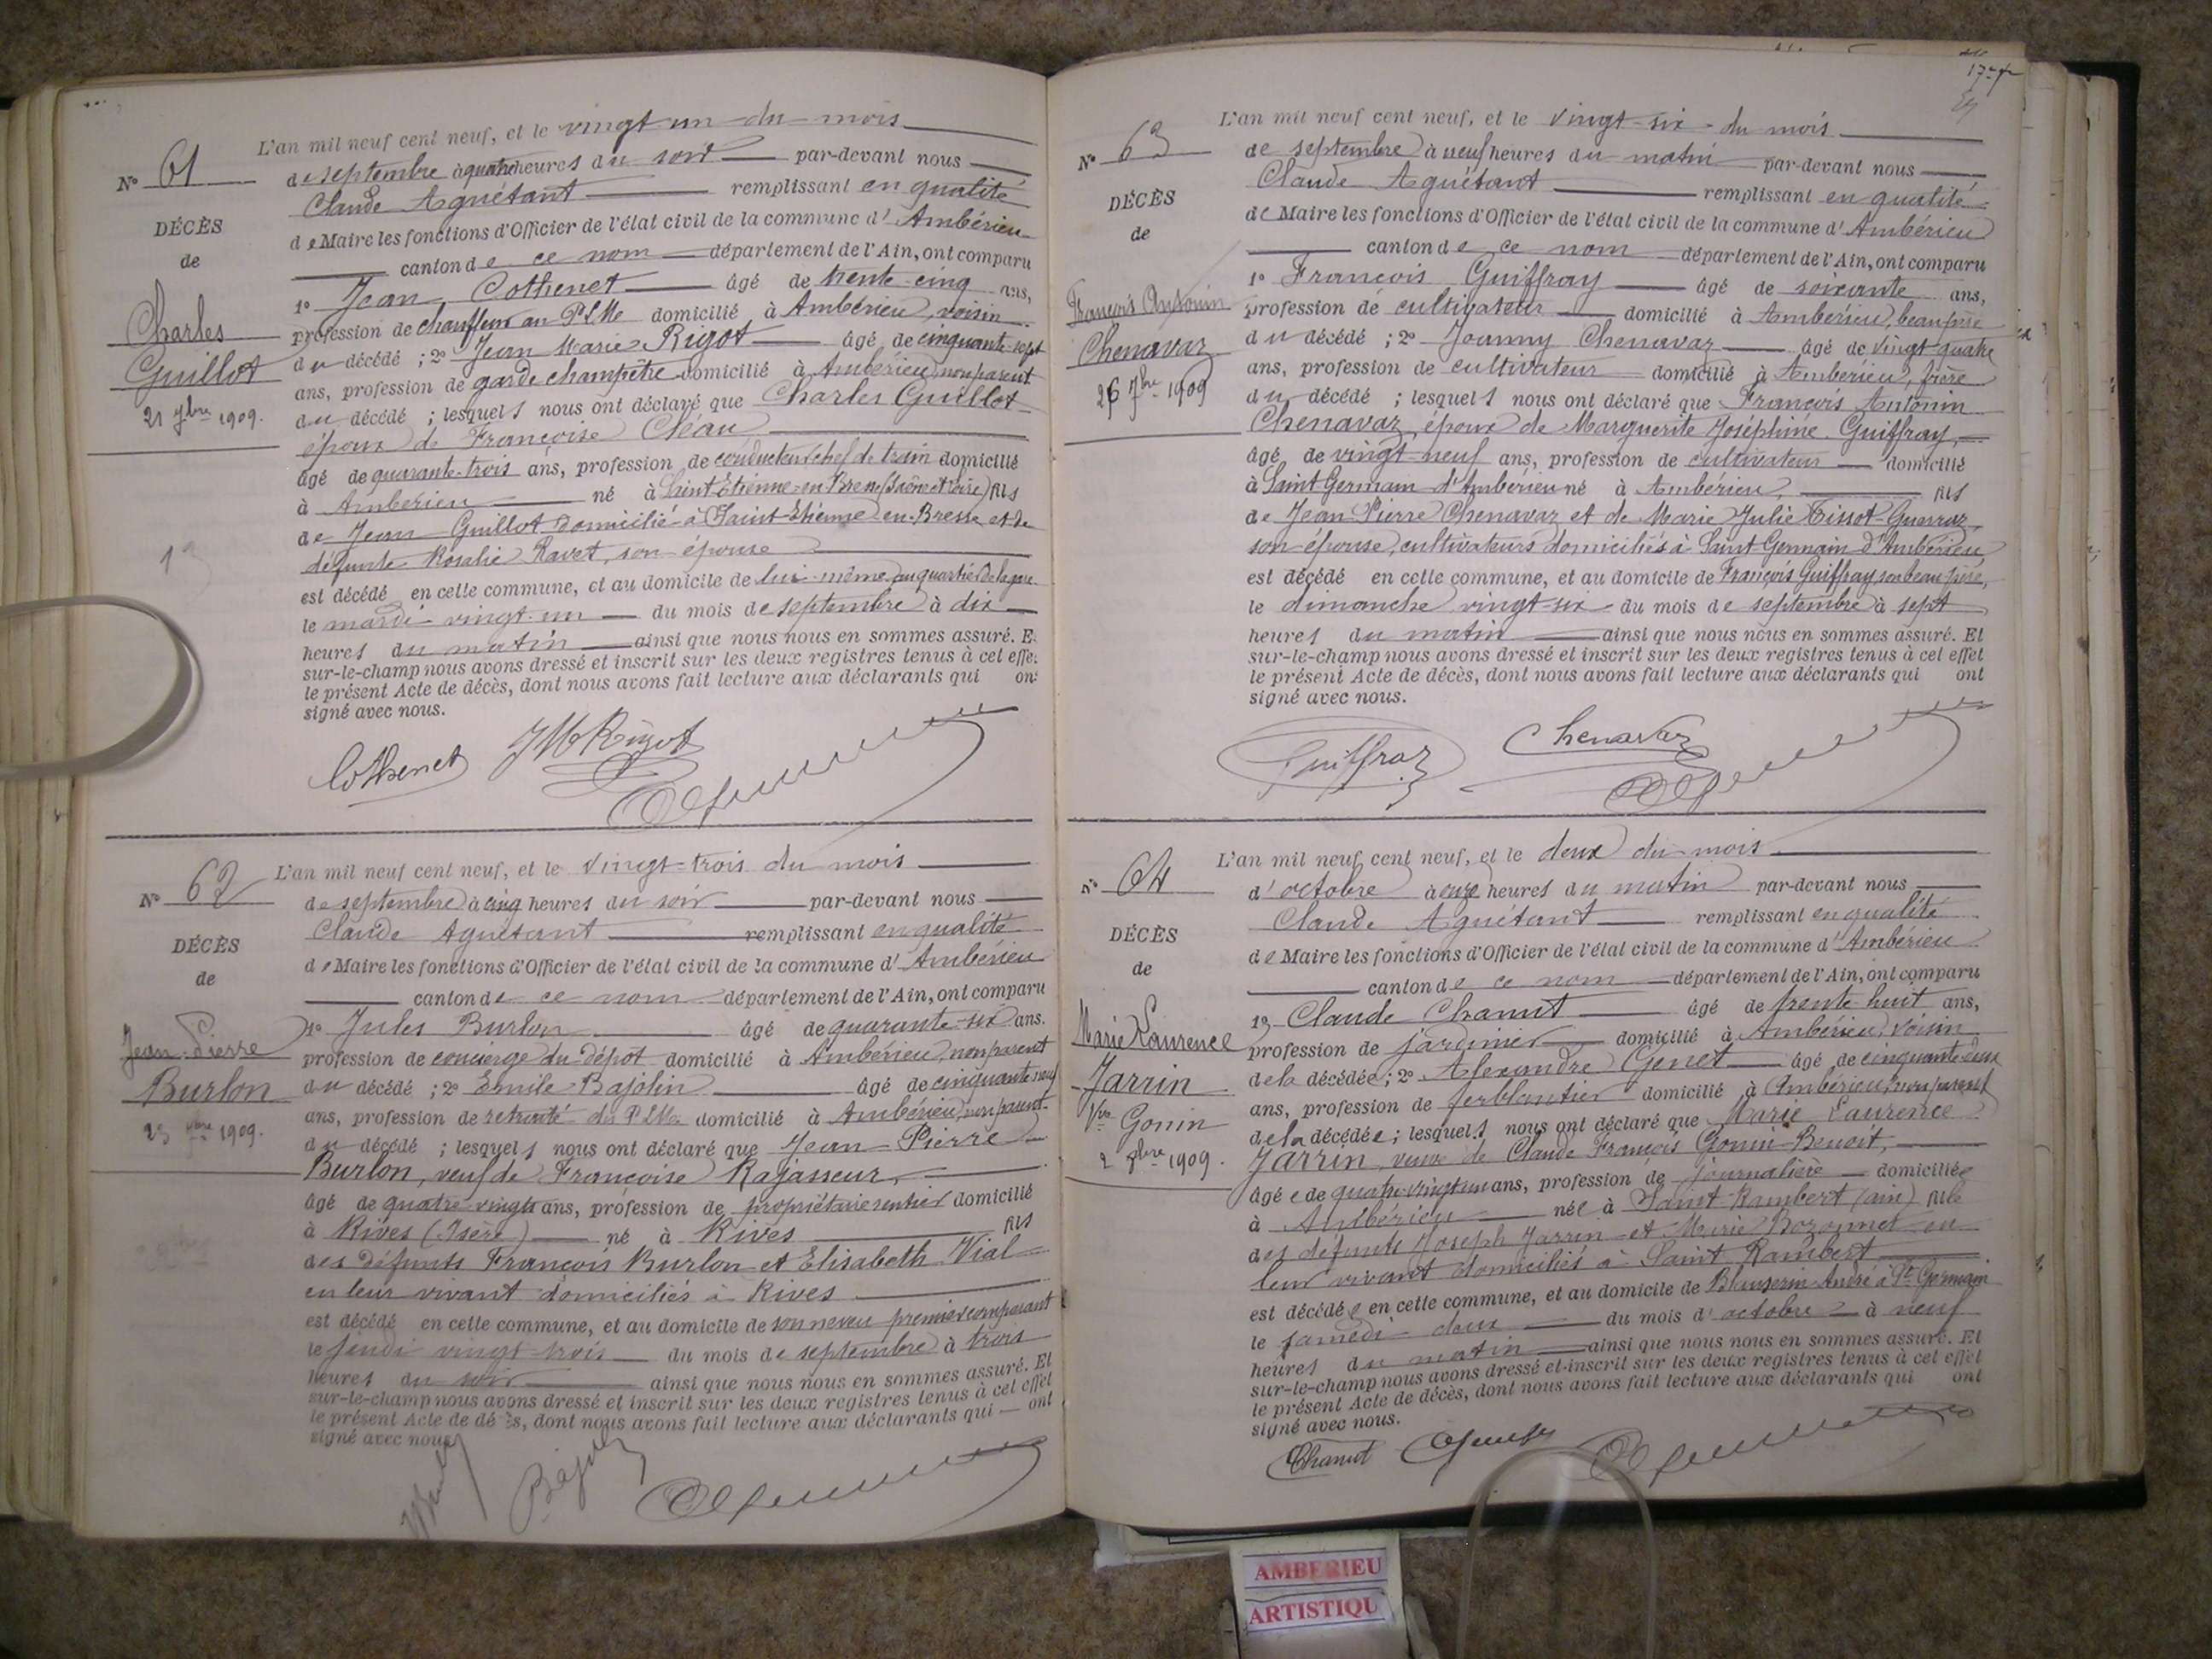 N° 61
DÉCÈS
de
Charles
Guillot
21 7bre 1909.
L'an mil neuf cent neuf, et le vingt un du mois
de septembre à quatre heures du soir par-devant nous
Claude Aguétant remplissant en qualité
de Maire les fonctions d'Officier de l'état civil de la commune d'Ambérieu
canton de ce nom département de l'Ain, ont comparu
1° Jean Cothenet âgé de trente cinq ans,
profession de chauffeur au PLM domicilié à Ambérieu, voisin
du décédé ; 2° Jean Marie Rigot âgé de cinquante-sept
ans, profession de garde champêtre domicilié à Ambérieu, non parent
du décédé ; lesquels nous ont déclaré que Charles Guillot
époux de Françoise Cléau
âgé de quarante-trois ans, profession de conducteur chef de train domicilié
à Ambérieu né à Saint Etienne-en-Bresse (Saône et Loire) fils
de Jean Guillot domicilié à Saint-Etienne-en-Bresse et de
défunte Rosalie Ravet, son épouse
est décédé en cette commune, et au domicile de lui-même, au quartier de la gare
le mardi vingt-un du mois de septembre à dix
heures du matin ainsi que nous nous en sommes assuré. E
sur-le-champ nous avons dressé et inscrit sur les deux registres tenus à cet effe
le présent Acte de décès, dont nous avons fait lecture aux déclarants qui on
signé avec nous.
Cothenet JM Rigot
N° 62
DÉCÈS
de
Jean-Pierre
Burlon
23 7bre 1909.
L'an mil neuf cent neuf, et le vingt-trois du mois
de septembre à cinq heures du soir par-devant nous
Claude Aguétant remplissant en qualité
de Maire les fonctions d'Officier de l'état civil de la commune d'Ambérieu
canton de ce nom département de l'Ain, ont comparu
1° Jules Burlon âgé de quarante-six ans.
profession de concierge du dépôt domicilié à Ambérieu, non parent
du décédé ; 2° Emile Bajolin âgé de cinquante neuf
ans, profession de retraité du PLM domicilié à Ambérieu, non parent
du décédé ; lesquels nous ont déclaré que Jean Pierre
Burlon, veuf de Françoise Rajasseur,
âgé de quatre-vingts ans, profession de propriétaire rentier domicilié
à Rives (Isère) né à Rives fils
des défunts François Burlon et Elisabeth Vial
en leur vivant domiciliés à Rives
est décédé en cette commune, et au domicile de son neveu premier comparant
le jeudi vingt trois du mois de septembre à trois
heures du soir ainsi que nous nous en sommes assuré. Et
sur-le-champ nous avons dressé et inscrit sur les deux registres tenus à cet effet
le présent Acte de décès, dont nous avons fait lecture aux déclarants qui — ont
signé avec nous.
177
N° 63
DÉCÈS
de
François Antonin
Chenavaz
26 7bre 1909
L'an mil neuf cent neuf, et le vingt-six du mois
de septembre à neuf heures du matin par-devant nous
Claude Aguétant remplissant en qualité
de Maire les fonctions d'Officier de l'état civil de la commune d'Ambérieu
canton de ce nom département de l'Ain, ont comparu
1° François Guiffray âgé de soixante ans,
profession de cultivateur domicilié à Ambérieu, beau père
du décédé ; 2° Joanny Chenavaz âgé de vingt-quatre
ans, profession de cultivateur domicilié à Ambérieu, frère
du décédé ; lesquels nous ont déclaré que François Antonin
Chenavaz, époux de Marguerite Joséphine Guiffray,
âgé de vingt-neuf ans, profession de cultivateur domicilié
à Saint Germain d'Ambérieu né à Ambérieu, fils
de Jean Pierre Chenavaz et de Marie Julie Tissot-Guerraz
son épouse, cultivateurs domiciliés à Saint Germain d'Ambérieu
est décédé en cette commune, et au domicile de François Guiffray, son beau père,
le dimanche vingt-six du mois de septembre à sept
heures du matin ainsi que nous nous en sommes assuré. Et
sur-le-champ nous avons dressé et inscrit sur les deux registres tenus à cet effet
le présent Acte de décès, dont nous avons fait lecture aux déclarants qui ont
signé avec nous.
Guiffraz Chenavaz
N° 64
DÉCÈS
de
Marie Laurence
Jarrin
Vve Gonin
2 8bre 1909.
L'an mil neuf cent neuf, et le deux du mois
d'octobre à onze heures du matin par-devant nous
Claude Aguétant remplissant en qualité
de Maire les fonctions d'Officier de l'état civil de la commune d'Ambérieu
canton de ce nom département de l'Ain, ont comparu
1° Claude Chanut âgé de trente-huit ans,
profession de jardinier domicilié à Ambérieu, voisin
de la décédée ; 2° Alexandre Genet âgé de cinquante-deux
ans, profession de ferblantier domicilié à Ambérieu, non parent
de la décédée ; lesquels nous ont déclaré que Marie Laurence
Jarrin, veuve de Claude François Gonin-Benoit,
âgée de quatre-vingt un ans, profession de journalière domiciliée
à Ambérieu née à Saint Rambert (ain) fille
des défunts Joseph Jarrin et Marie Bozonnet en
leur vivant domiciliés à Saint Rambert
est décédée en cette commune, et au domicile de Blangerin André à St Germain
le samedi deux du mois d'octobre à neuf
heures du matin ainsi que nous nous en sommes assuré. Et
sur-le-champ nous avons dressé et inscrit sur les deux registres tenus à cet effet
le présent Acte de décès, dont nous avons fait lecture aux déclarants qui ont
signé avec nous.
Chanut
AMBERIEU
ARTISTIQU